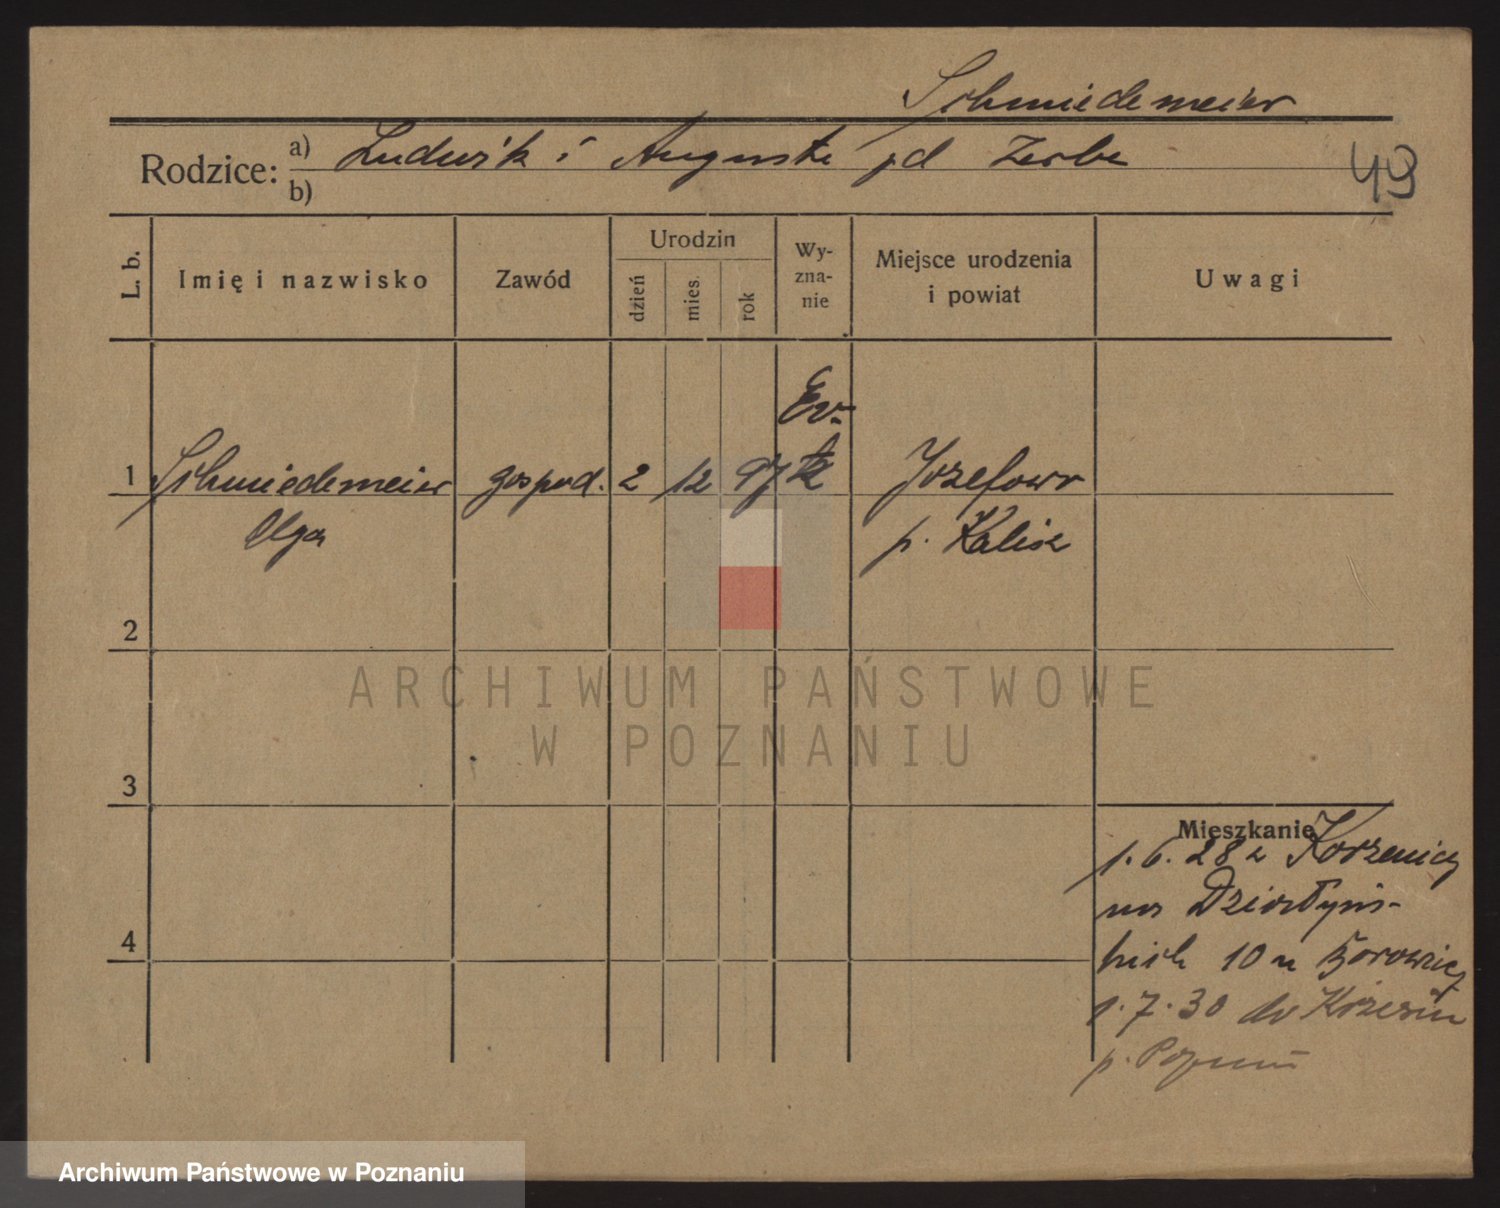 Schmiedemeier
Rodzice: a) Ludwik i Auguste pd Zerbe
49
b)
L. b.
Imię i nazwisko
Zawód
Urodzin
dzień
mies.
rok
Wy-
zna-
nie
Miejsce urodzenia
i powiat
Uwagi
Ev-
1 Schmiedemeier gospod. 2 12 97 Józefowo
Olga p. Kalisz
2
ARCHIWUM PAŃSTWOWE
W POZNANIU
3
Mieszkanie
1.6.28 z
4
10 u
1.7.30 do Krzesin
p. Poznań
Archiwum Państwowe w Poznaniu